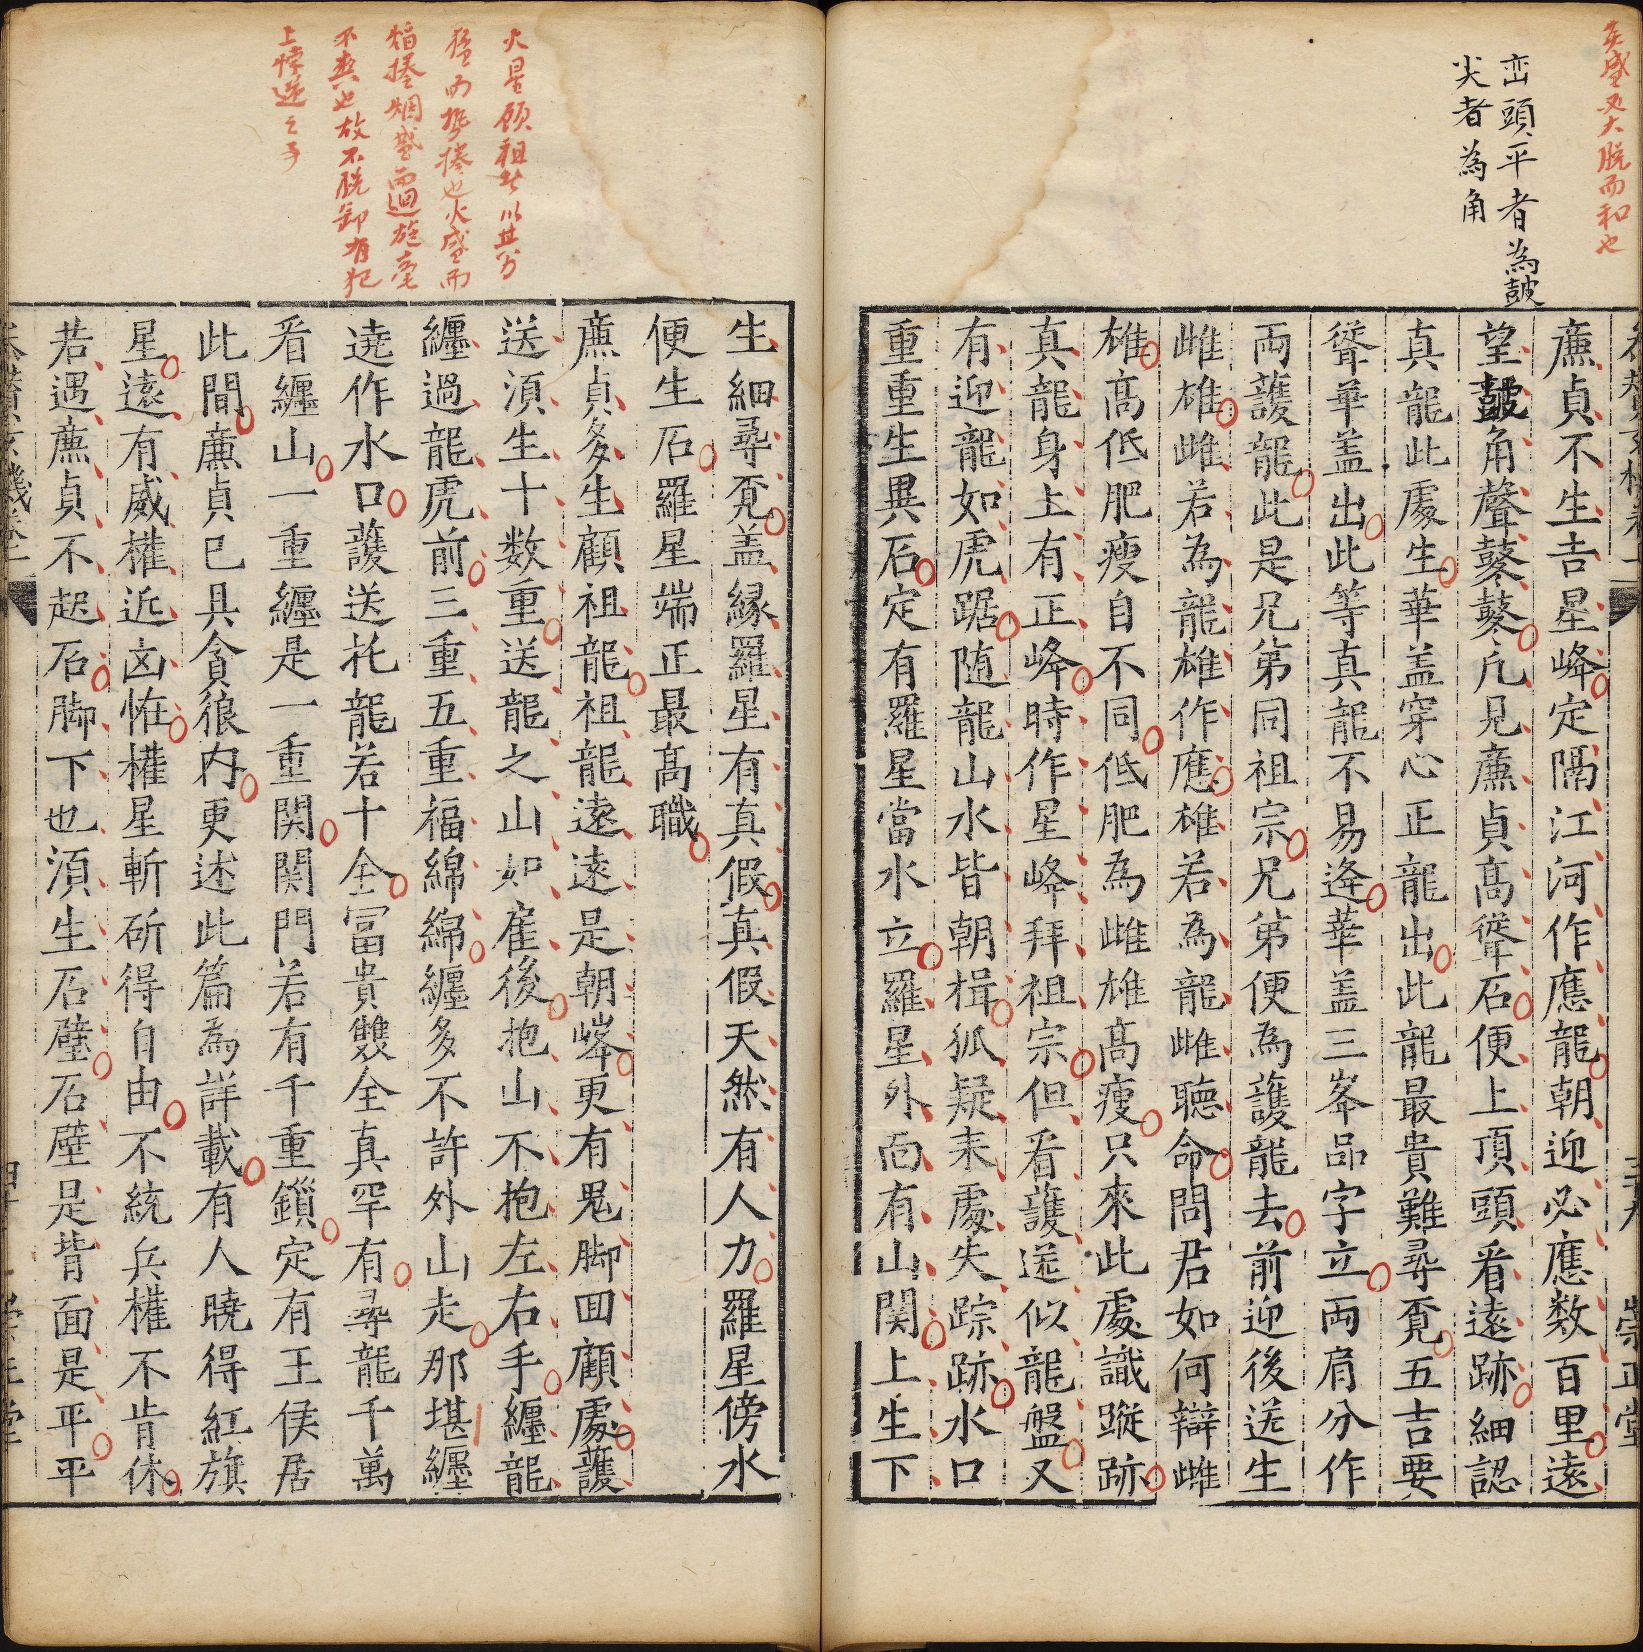 炎盛又大脫而和也
峦頭平者為皷
尖者為角
三才
崇正堂
廉貞不生吉星峰定隔江河作應龍朝迎必應数百里遠
望皷角聲鼕鼕凡見廉貞髙聳石便上頂頭看遠跡細認
真龍此處生華盖穿心正龍出此龍最貴難尋覔五吉要
聳華盖出此等真龍不易逄華盖三峯品字立両肩分作
両護龍此是兄第同祖宗兄第便為護龍去前迎後送生
雌雄雌若為龍雄作應雄若為龍雌聴命問君如何辯雌
雄髙低肥瘦自不同低肥為雌雄髙瘦只來此處識蹤跡
真龍身上有正峰時作星峰拜祖宗但看護送似龍盤又
有迎龍如虎踞随龍山水皆朝揖狐疑来處失踪跡水口
重重生異石定有羅星當水立羅星外面有山関上生下
火星顾祖者以其勢
猛而攀捲也火盛而
焰捲烟盛而迴旋毫
不爽也故不脱卸有犯
上悖逆之子
生細尋覔盖緣羅星有真假真假天然有人力羅星傍水
便生石羅星端正最髙職
廉貞多生顧祖龍祖龍遠遠是朝峰更有鬼脚囬顧處護
送湏生十数重送龍之山如雇後抱山不抱左右手纏龍
纏過龍虎前三重五重福綿綿纏多不許外山走那堪纏
遶作水口護送托龍若十全冨貴雙全真罕有尋龍千萬
看纏山一重纏是一重関関門若有千重鎻定有王侯居
此間廉貞已具貪狼内更述此篇為詳載有人曉得紅旗
星遠有威權近凶恠權星斬斫得自由不統兵權不肯休
若遇廉貞不起石脚下也湏生石壁石壁是背面是平平